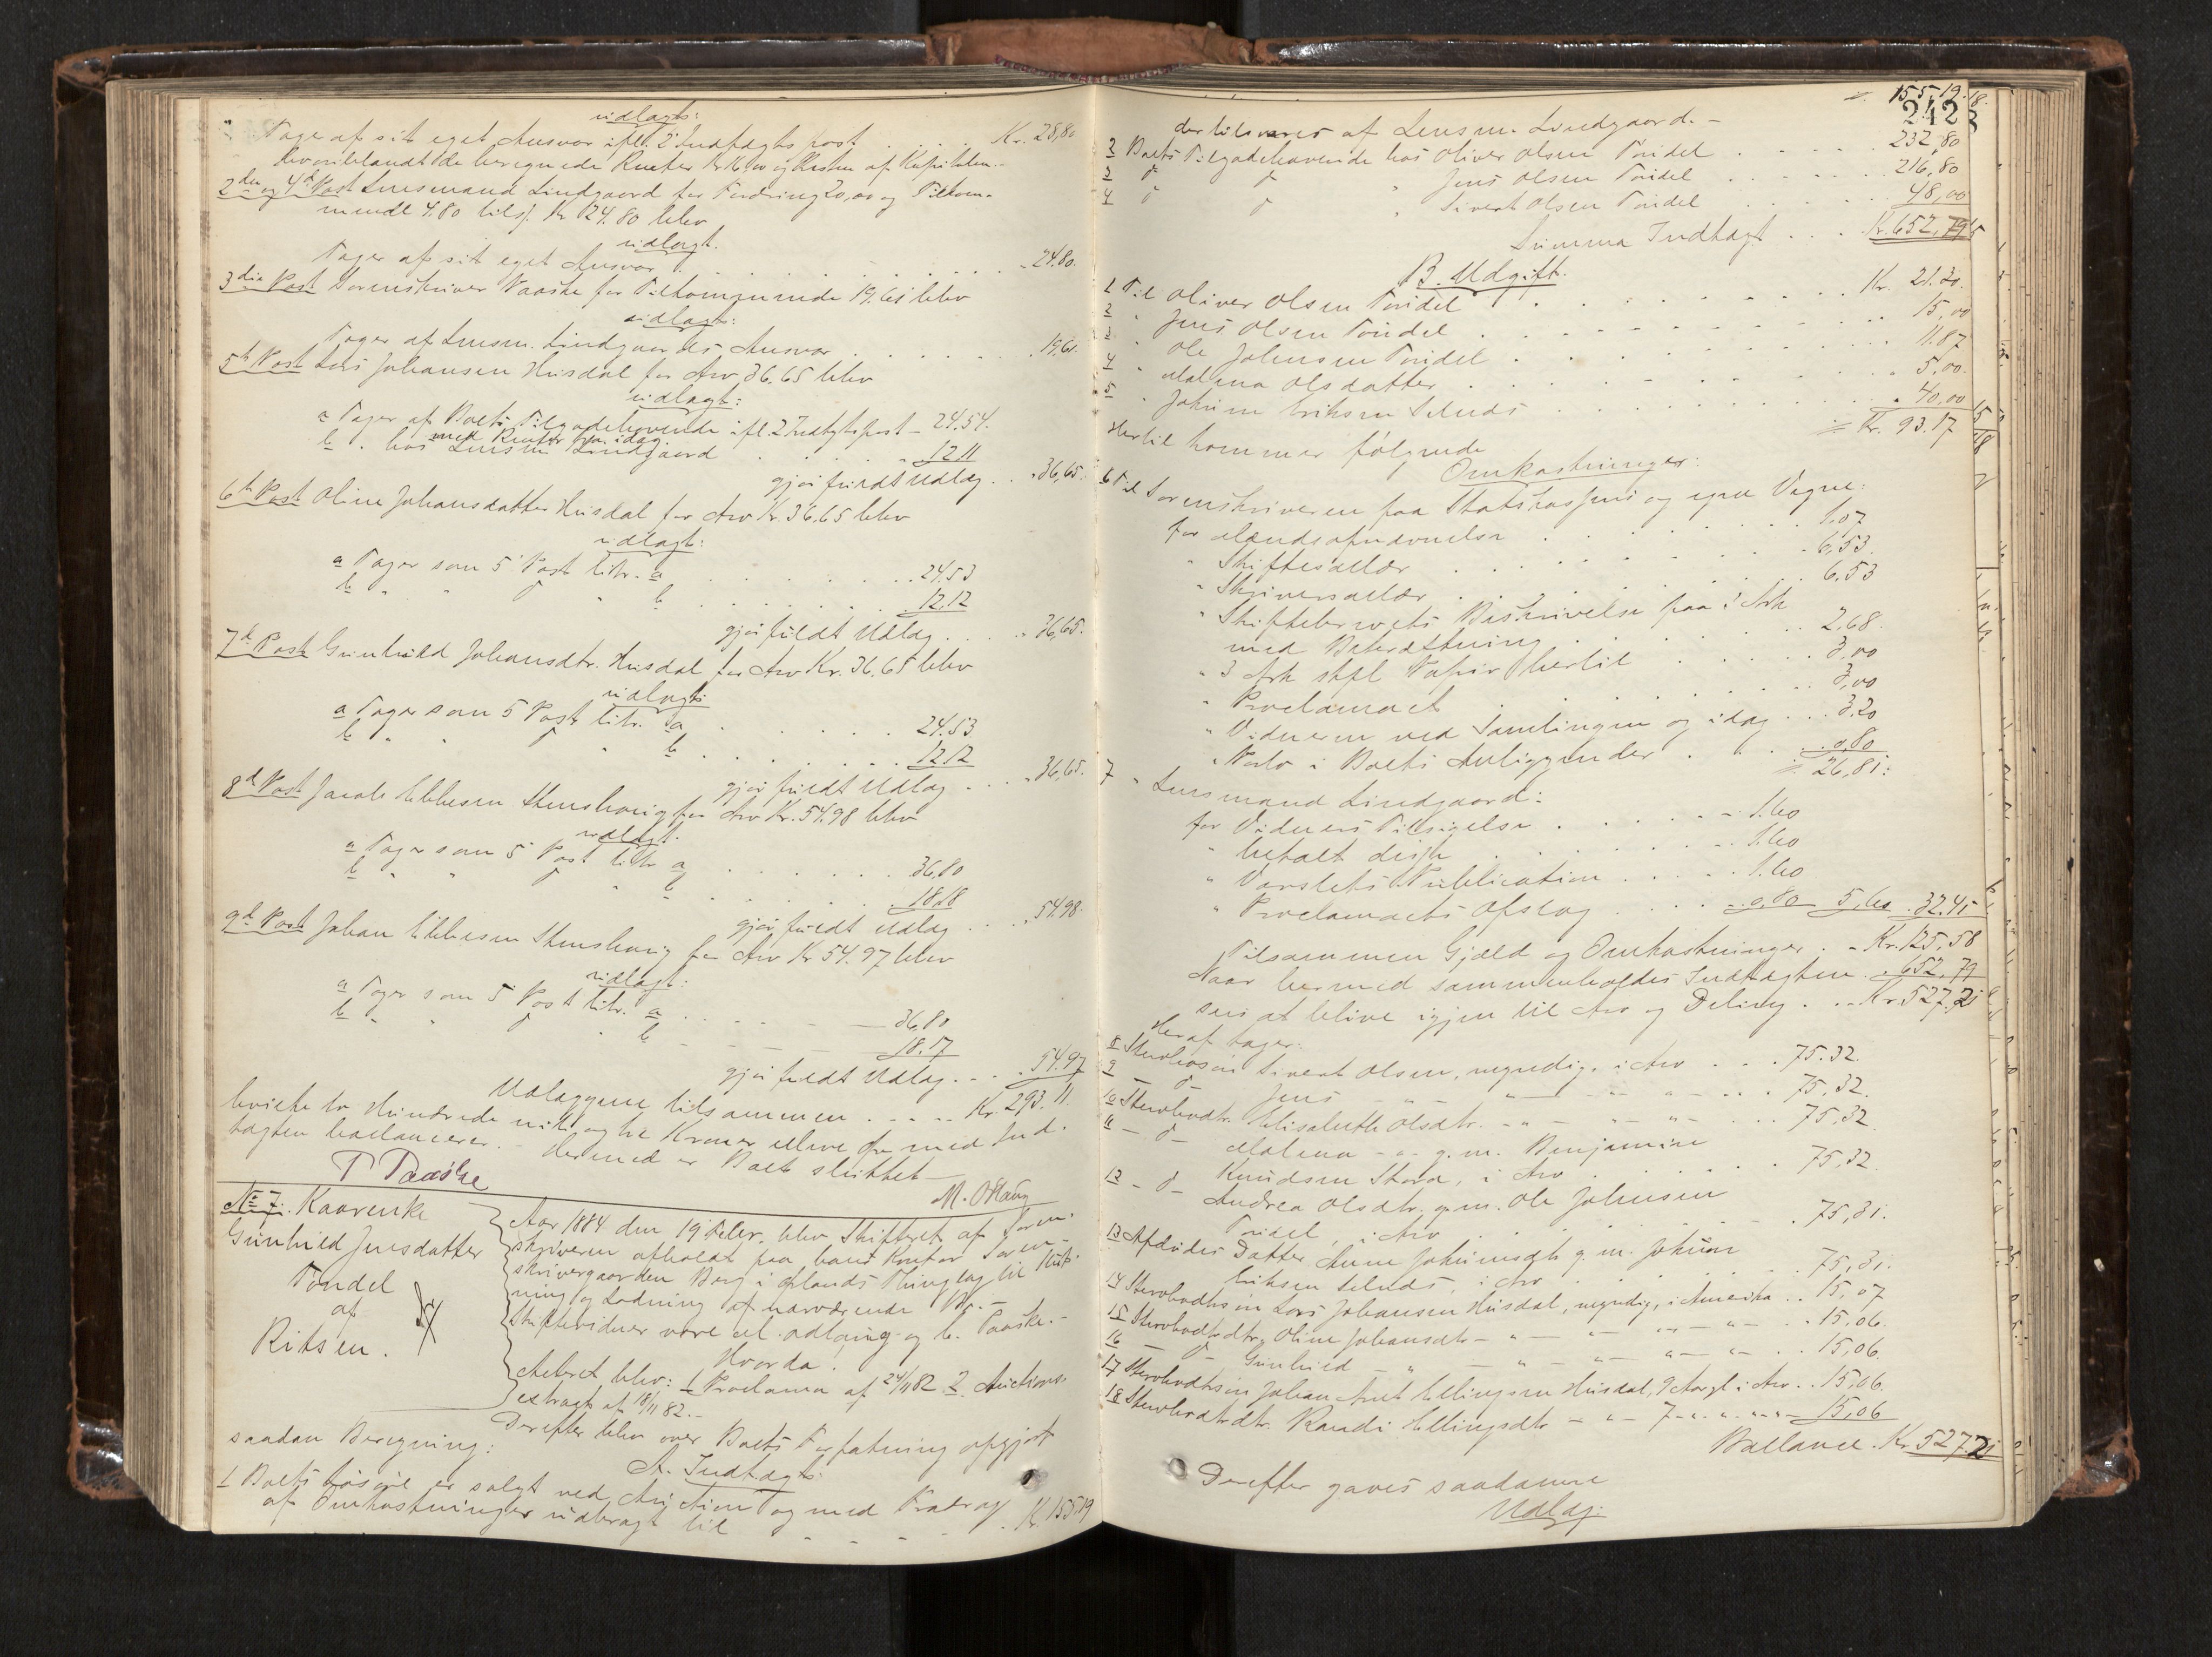 udlagt:
Tager af sit eget Ansvar ifl. 2 Indtægts post . . . . Kr. 28,80
hvoriblandt de beregnede Renter Kr 16,00 og Resten af Kapitalen.
2den og 4d Post Lensmand Lindgaard for Fordring 20,00 og Tilkom-
mende 4.80 tils. Kr 24.80 blev
udlagt.
Tager af sit eget Ansvar . . . . . . . . . . . 24.80.
3die Post Sorenskriver Paaske for Tilkommende 19.61 blev
udlagt:
Tager af Lensm. Lindgaards Ansvar . . . . . . . 19,61.
5t Post Lars Johansen Husdal for Arv 36,65 blev
udlagt:
a Tager af Boets Tilgodehavende ifl. 2 Indtgtspost - 24.54.
med Renter fra idag.
b " hos Lensm Lindgaard . . . . . . 12.11
gjør fuldt Udlæg . . 36,65.
6t Post Oline Johansdatter Husdal for Arv Kr. 36,65 blev
udlagt:
a Tager som 5 Post litr. a . . . . . . . 24.53
b " " d " b . . . . . . . 12.12
gjør fuldt Udlæg . . . . 36,65.
7d Post Gunhild Johansdtr. Husdal for Arv Kr. 36.65 blev
udlagt:
a Tager som 5 Post litr. a . . . . . . . 24.53
b " " d " b . . . . . . . 12.12
gjør fuldt Udlæg . . . 36,65.
8d Post Jacob Ellessen Stenshaug for Arv Kr. 54.98 blev
udlagt.
a Tager som 5 Post litr a . . . . . . 36,80
b " " d " b . . . . . . 18.18
gjør fuldt Udlæg . . . . 54.98.
9d Post Johan Ellessen Stenshaug for Arv Kr 54.97 blev
udlagt:
a Tager som 5 Post litr. a . . . . — 36,80
b " " d " b — — — 18.17
gjør fuldt Udlæg . . . . 54.97
Udlæggene tilsammen . . . . . Kr. 293.11.
hvilke to Hundrede nitti og tre Kroner elleve Øre med Ind-
tægten balancerer. - Dermed er Boet sluttet —
P Paaske
M. O Haug
No 7. Kaarenke
Gunhild Jensdatter
Tøndel
af
Ritsem.
Aar 1884 den 19 Febr. blev Skifteret af Soren-
skriveren afholdt paa hans Kontor Soren-
skrivergaarden Berg i Ørlands Thinglag til Slut-
ning og Lodning af nærværende Bo. -
Skiftevidner vare el. Ødlaing og C. Paaske. -
Hvorda:
Akteret blev: 1 Proclama af 24/11 82 2. Auctions-
extract af 18/11 82. -
Derefter blev over Boets Forfatning opgjort
saadan Beregning:
A. Indtægt:
1 Boets Løsøre er solgt ved Auction og med Fradrag
af Omkostninger udbragt til - - - - . Kr. 155.19
155,19.18.
242
der tilsvares af Lensm. Lindgaard. -
2 Boets Tilgodehavende hos Oliver Olsen Tøndel . . . . . 232,80
3 d d " Jens Olsen Tøndel . . . . . . 216,80
4 d d " Sivert Olsen Tøndel . . . . . 48,00
Summa Indtægt . . . Kr. 652,79
B. Udgift.
1 Til Oliver Olsen Tøndel . . . . . . . . . Kr. 21.30.
2 " Jens Olsen Tøndel . . . . . . . . . . 15,00
3 " Ole Johnsen Tøndel . . . . . . . . . . 11.87
4 " Malena Olsdatter . . . . . . . . . . . 5,00.
5 " Johium Eriksen Selnes . . . . . . . . . . 40,00
Kr. 93.17
Hertil kommer følgende
Omkostninger:
6 Til Sorenskriveren paa Statskassens og egne Vegne:
for Mændsopnævnelse . . . . . . . 1.07
" Skiftesalær . . . . . . . . . 6,53.
" Skriversalær . . . . . . . . . 6.53
" Skiftebrevets Beskrivelse paa 3 Ark
med Bekræftning . . . . . . . 2.68.
" 3 Ark stpl Papir hertil . . . . . 3,00
" Proclamaet . . . . . . . . . 3,00
" Vidnerne ved Samlingen og idag . . . 3.20
" Porto i Boets Anliggender . . . . 0,80
26,81:
7 " Lensmand Lindgaard:
for Vidners Tilsigelse . . . . . . - 1.60
" betalt disse . . . . . . . - 1.60
" Varslets Publication . . . . . 1.60
" Proclamaets Opslag . . . . - 0,80 5,60 . 32.41
Tilsammen Gjæld og Omkostninger . - Kr. 125,58
Naar hermed sammenholdes Indtægten . . 652,79
sees at blive igjen til Arv og Deling . . - Kr. 527.21
Heraf tager:
8 Stervbosøn Sivert Olsen, myndig, i Arv . . . 75.32.
9 - d - Jens - " - - " - - " - . . . 75,32.
10 Stervbodtr. Elisabeth Olsdtr. - " - " - . . . 75,32.
11 - d - Malena - " - g.m. Benjamine
Knudsen Stora, i Arv . . . . . 75,32.
12 - d - Andrea Olsdtr. g.m. Ole Johnsen
Tøndel, i Arv . . . . . . . 75,31.
13 Afdødes Datter Anne Johiumsdtr g.m. Johium
Eriksen Selnes, i Arv . . . . . . 75,31.
14 Stervbodtrsøn Lars Johansen Husdal, myndig, i Amerika . . 15,07
15 Stervbodtrdtr. Oline Johansdtr - " - " - " - . . 15,06.
16 - d - Gunhild - " - " - " - . . 15,06.
17 Stervbodtrsøn Johan Arnt Ellingsen Husdal, 9 Aar gl. i Arv . . 15,06.
18 Stervbodtrdtr. Randi Ellingsdtr - " - 7 - " - " - 15,06
Ballance. Kr. 527.21
Derefter gaves saadanne
Udlæg: